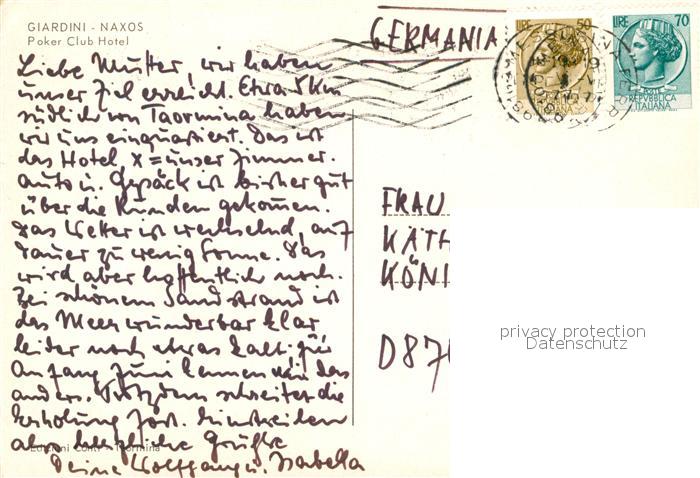 GIARDINI - NAXOS
Poker Club Hotel
Liebe Mutter, wir haben
unser Ziel erreicht. Etwa 5 km
südlich von Taormina haben
wir uns einquartiert. Das ist
das Hotel, x = unser Zimmer.
Auto u. Gepäck ist bisher gut
über die Runden gekommen.
Das Wetter ist wechselnd, auf
Dauer zu wenig Sonne. Das
wird aber hoffentlich noch.
Bei schönem Sandstrand ist
das Meer wunderbar klar
leider noch etwas kalt. für
Anfang Juni kennen wir das
anders. Trotzdem schreitet die
Erholung fort. Einstweilen
also herzliche Grüße
Deine Wolfgang u. Isabella
Edizioni Taormina
GERMANIA
LIRE 50
LIRE 70
REPUBBLICA
ITALIANA
FRAU
KÄTH
KÖNI
D87
privacy protection
Datenschutz